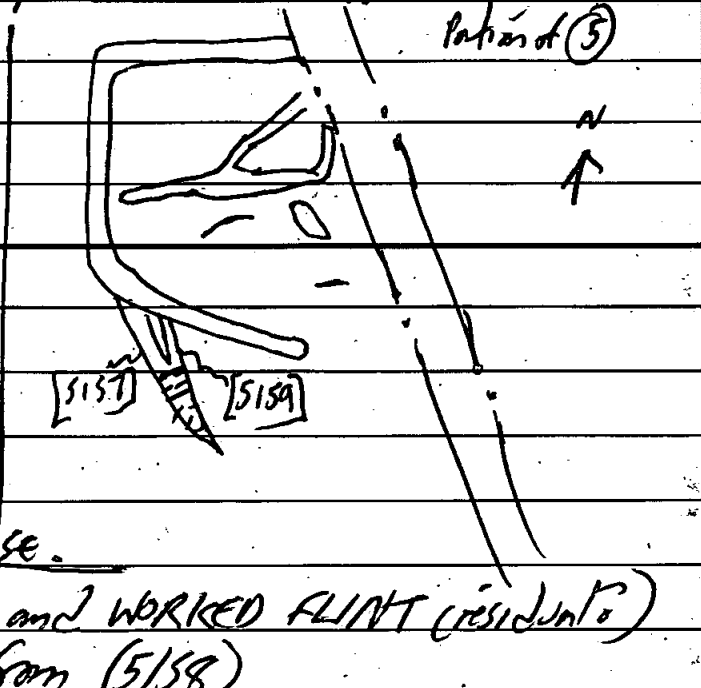 Portion of ⑤
N
[5157]
[5159]
se.
and WORKED FLINT (residual?)
from (5158)